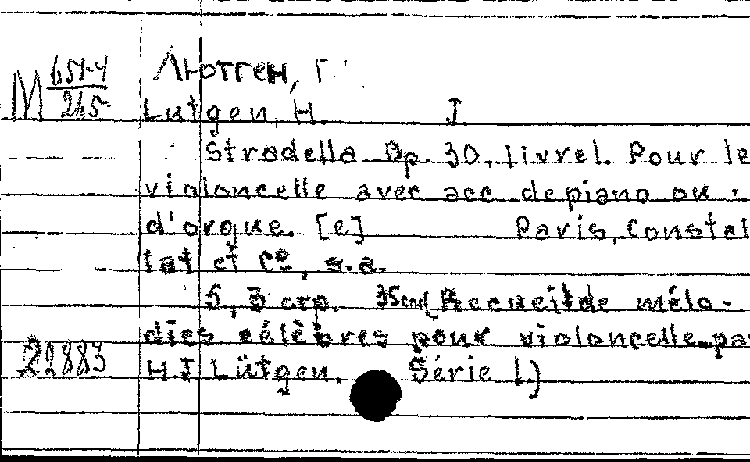 М 651-4/265 Лютген, Г.
Lutgen, H. J.
Stradella Op. 30, livrel. Pour le
violoncelle avec acc depiano ou
d'orque. [e] Paris, Constal
tat et Cº, s.a.
5, 3 стр. 35cm (Recueil de mélo-
dies célèbres pour violoncelle pa
22883 H.J Lütgen. Série 1.)